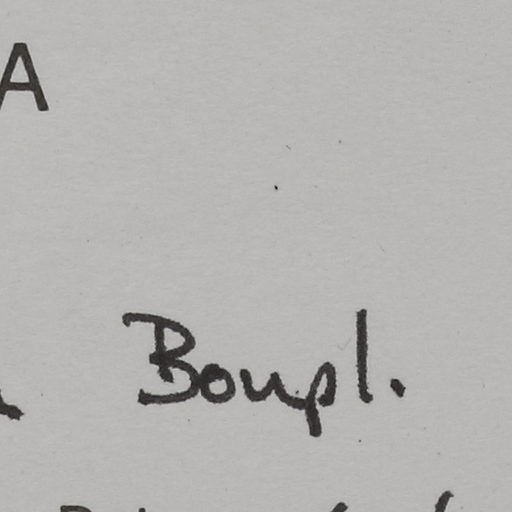 A
Boupl.